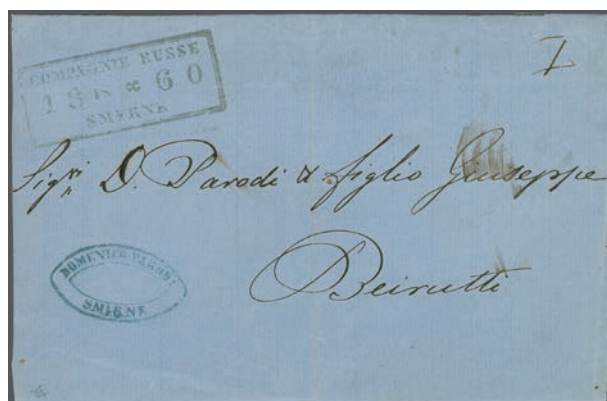 COMPAGNIE RUSSE
18 60
SMYRNE
I
Sig.ri D. Parodi & figlio Giuseppe
Beirutti
DOMENICO PARODI
SMIRNE